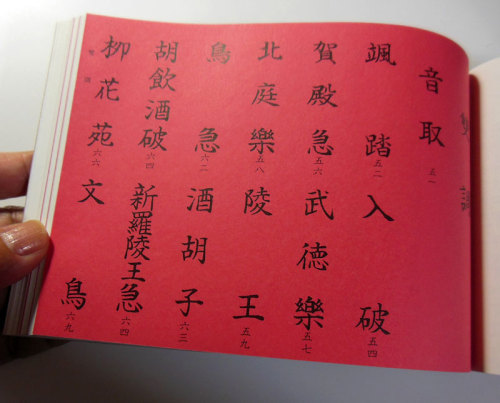 雙調
音取 五一
颯踏 五二
入破 五四
賀殿急 五六
武德樂 五七
北庭樂 五八
陵王 五九
鳥急 六二
酒胡子 六三
胡飲酒破 六四
新羅陵王急 六四
柳花苑 六六
文鳥 六九